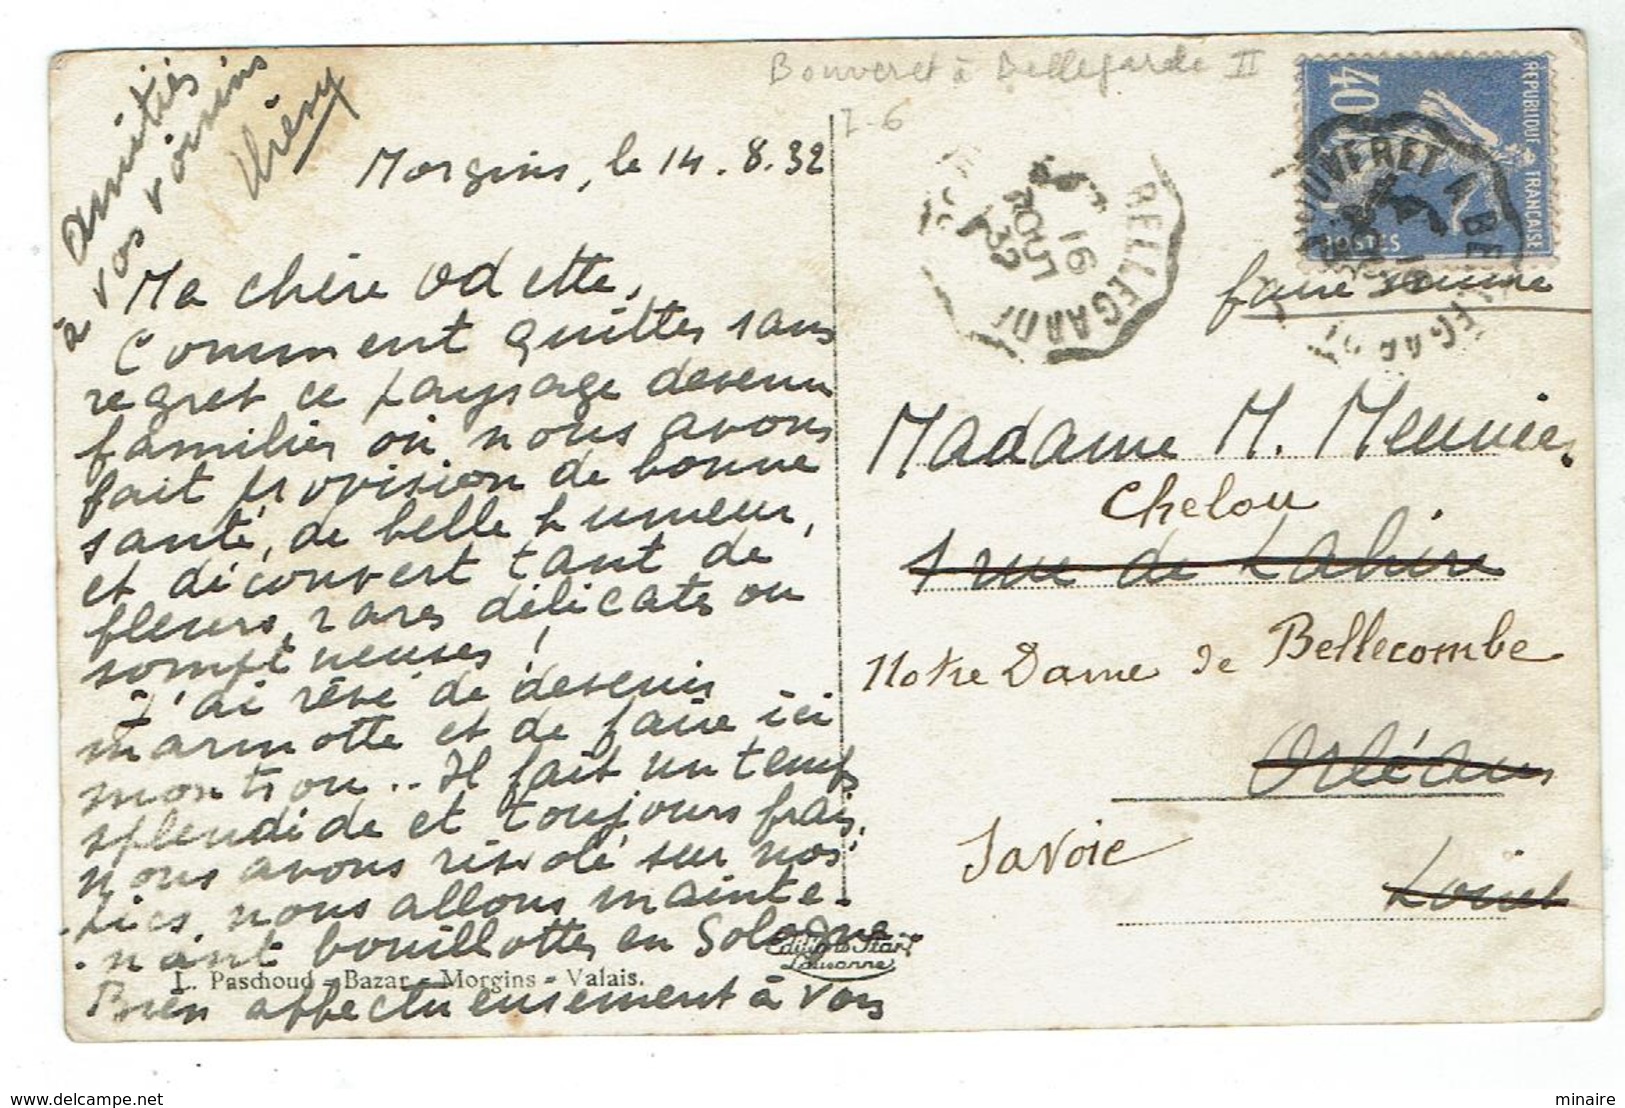 Bouveret à Bellegarde II
I-6
Amitiés
à vos voisins
Morgins, le 14.8.32
Ma chère Odette,
Comment quitter sans
regret ce paysage devenu
familier où nous avons
fait provision de bonne
santé, de belle humeur,
et découvert tant de
fleurs, rares délicates ou
somptueuses!
J'ai rêvé de devenir
marmotte et de faire ici
mon trou.. Il fait un temps
splendide et toujours frais,
nous avons rissolé sur nos
nous allons mainte-
nant en Sologne
Bien affectueusement à vous
L. Paschoud - Bazar - Morgins - Valais.
Editions Lausanne
40
REPUBLIQUE FRANCAISE
POSTES
BOUVERET A BELLEGARDE
BELLEGARDE
16
AOUT
32
faire suivre
Madame M. Meunier
Chelou
1 rue de Lahire
Notre Dame de Bellecombe
Orléans
Savoie
Loiret
delcampe.net
minaire